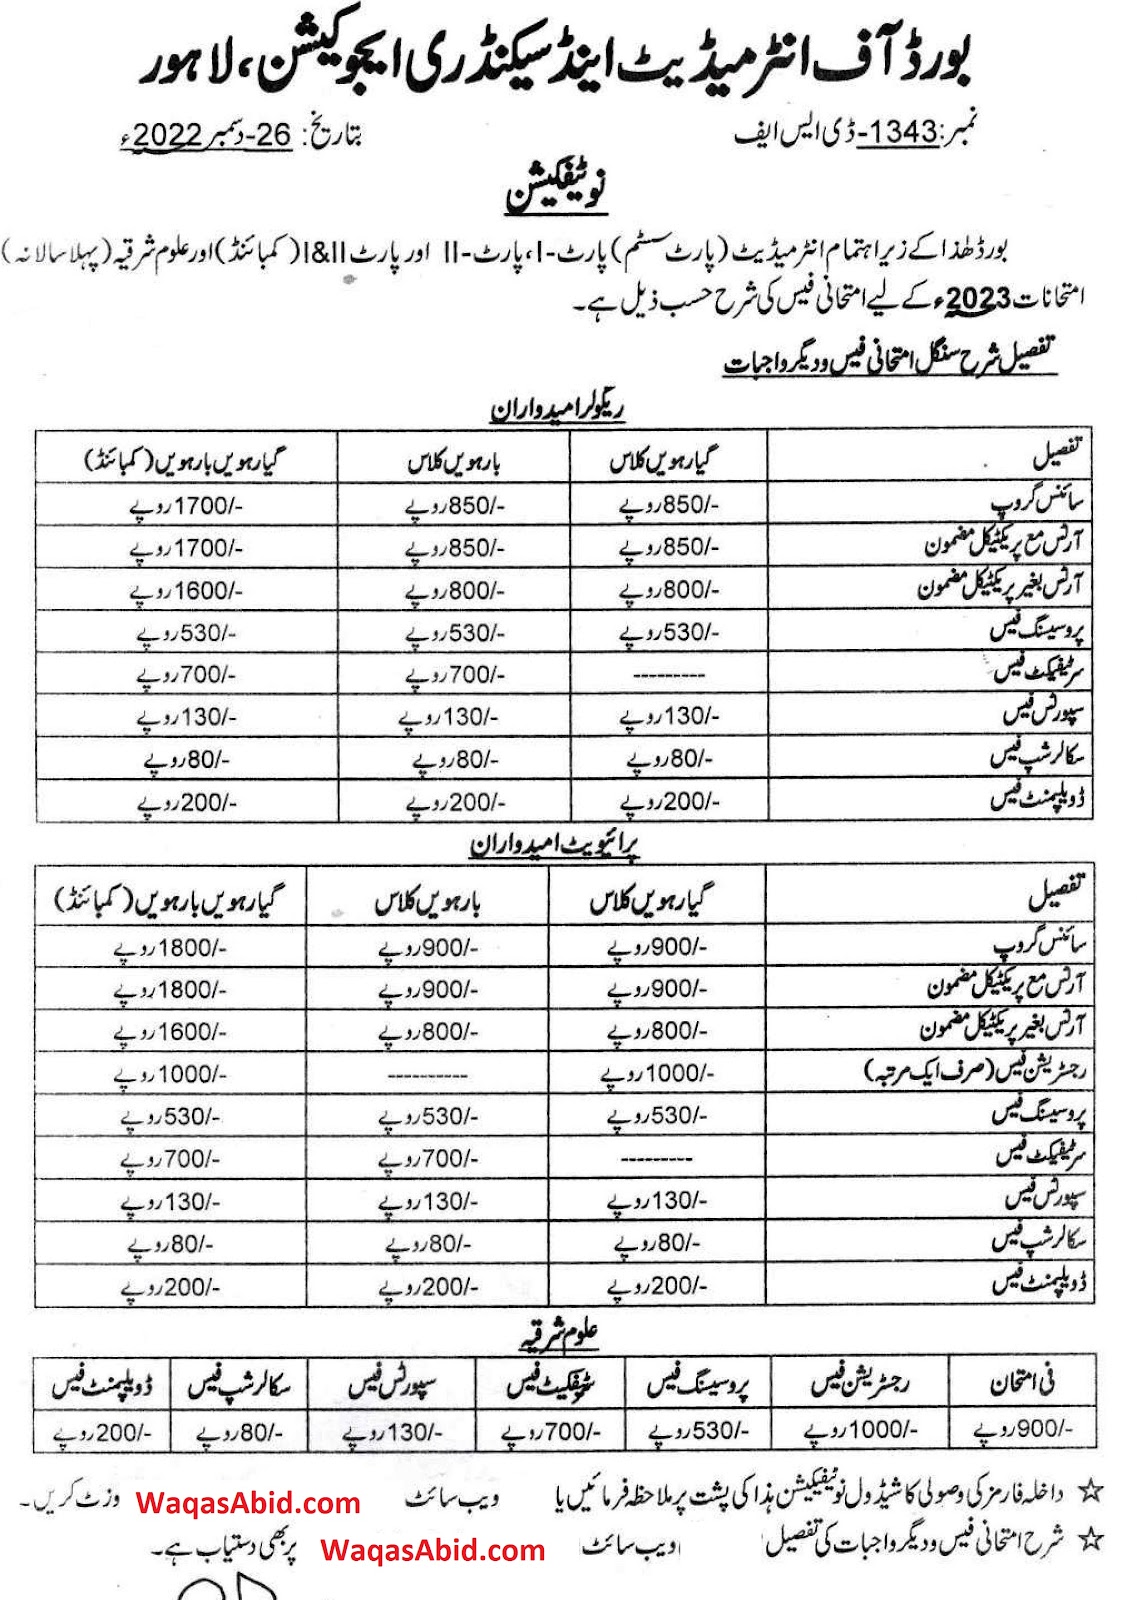 بورڈ آف انٹرمیڈیٹ اینڈ سیکنڈری ایجوکیشن، لاہور
نمبر:1343-ڈی ایس ایف بتاریخ: 26-دسمبر 2022ء
نوٹیفکیشن
بورڈ ھذا کے زیر اہتمام انٹرمیڈیٹ (پارٹ سسٹم) پارٹ-I، پارٹ-II اور پارٹ I&II (کمبائنڈ) اور علوم شرقیہ (پہلا سالانہ)
امتحانات 2023ء کے لیے امتحانی فیس کی شرح حسب ذیل ہے۔
تفصیل شرح سنگل امتحانی فیس و دیگر واجبات
ریگولر امیدواران
تفصیل گیارہویں کلاس بارہویں کلاس گیارہویں بارہویں (کمبائنڈ)
سائنس گروپ 850/-روپے 850/-روپے 1700/-روپے
آرٹس مع پریکٹیکل مضمون 850/-روپے 850/-روپے 1700/-روپے
آرٹس بغیر پریکٹیکل مضمون 800/-روپے 800/-روپے 1600/-روپے
پروسیسنگ فیس 530/-روپے 530/-روپے 530/-روپے
سرٹیفکیٹ فیس --------- 700/-روپے 700/-روپے
سپورٹس فیس 130/-روپے 130/-روپے 130/-روپے
سکالرشپ فیس 80/-روپے 80/-روپے 80/-روپے
ڈویلپمنٹ فیس 200/-روپے 200/-روپے 200/-روپے
پرائیویٹ امیدواران
تفصیل گیارہویں کلاس بارہویں کلاس گیارہویں بارہویں (کمبائنڈ)
سائنس گروپ 900/-روپے 900/-روپے 1800/-روپے
آرٹس مع پریکٹیکل مضمون 900/-روپے 900/-روپے 1800/-روپے
آرٹس بغیر پریکٹیکل مضمون 800/-روپے 800/-روپے 1600/-روپے
رجسٹریشن فیس (صرف ایک مرتبہ) 1000/-روپے ---------- 1000/-روپے
پروسیسنگ فیس 530/-روپے 530/-روپے 530/-روپے
سرٹیفکیٹ فیس --------- 700/-روپے 700/-روپے
سپورٹس فیس 130/-روپے 130/-روپے 130/-روپے
سکالرشپ فیس 80/-روپے 80/-روپے 80/-روپے
ڈویلپمنٹ فیس 200/-روپے 200/-روپے 200/-روپے
علوم شرقیہ
فی امتحان رجسٹریشن فیس پروسیسنگ فیس سرٹیفکیٹ فیس سپورٹس فیس سکالرشپ فیس ڈویلپمنٹ فیس
900/-روپے 1000/-روپے 530/-روپے 700/-روپے 130/-روپے 80/-روپے 200/-روپے
☆ داخلہ فارمز کی وصولی کا شیڈول نوٹیفکیشن ہذا کی پشت پر ملاحظہ فرمائیں یا ویب سائٹ WaqasAbid.com وزٹ کریں۔
☆ شرح امتحانی فیس و دیگر واجبات کی تفصیل ویب سائٹ WaqasAbid.com پر بھی دستیاب ہے۔